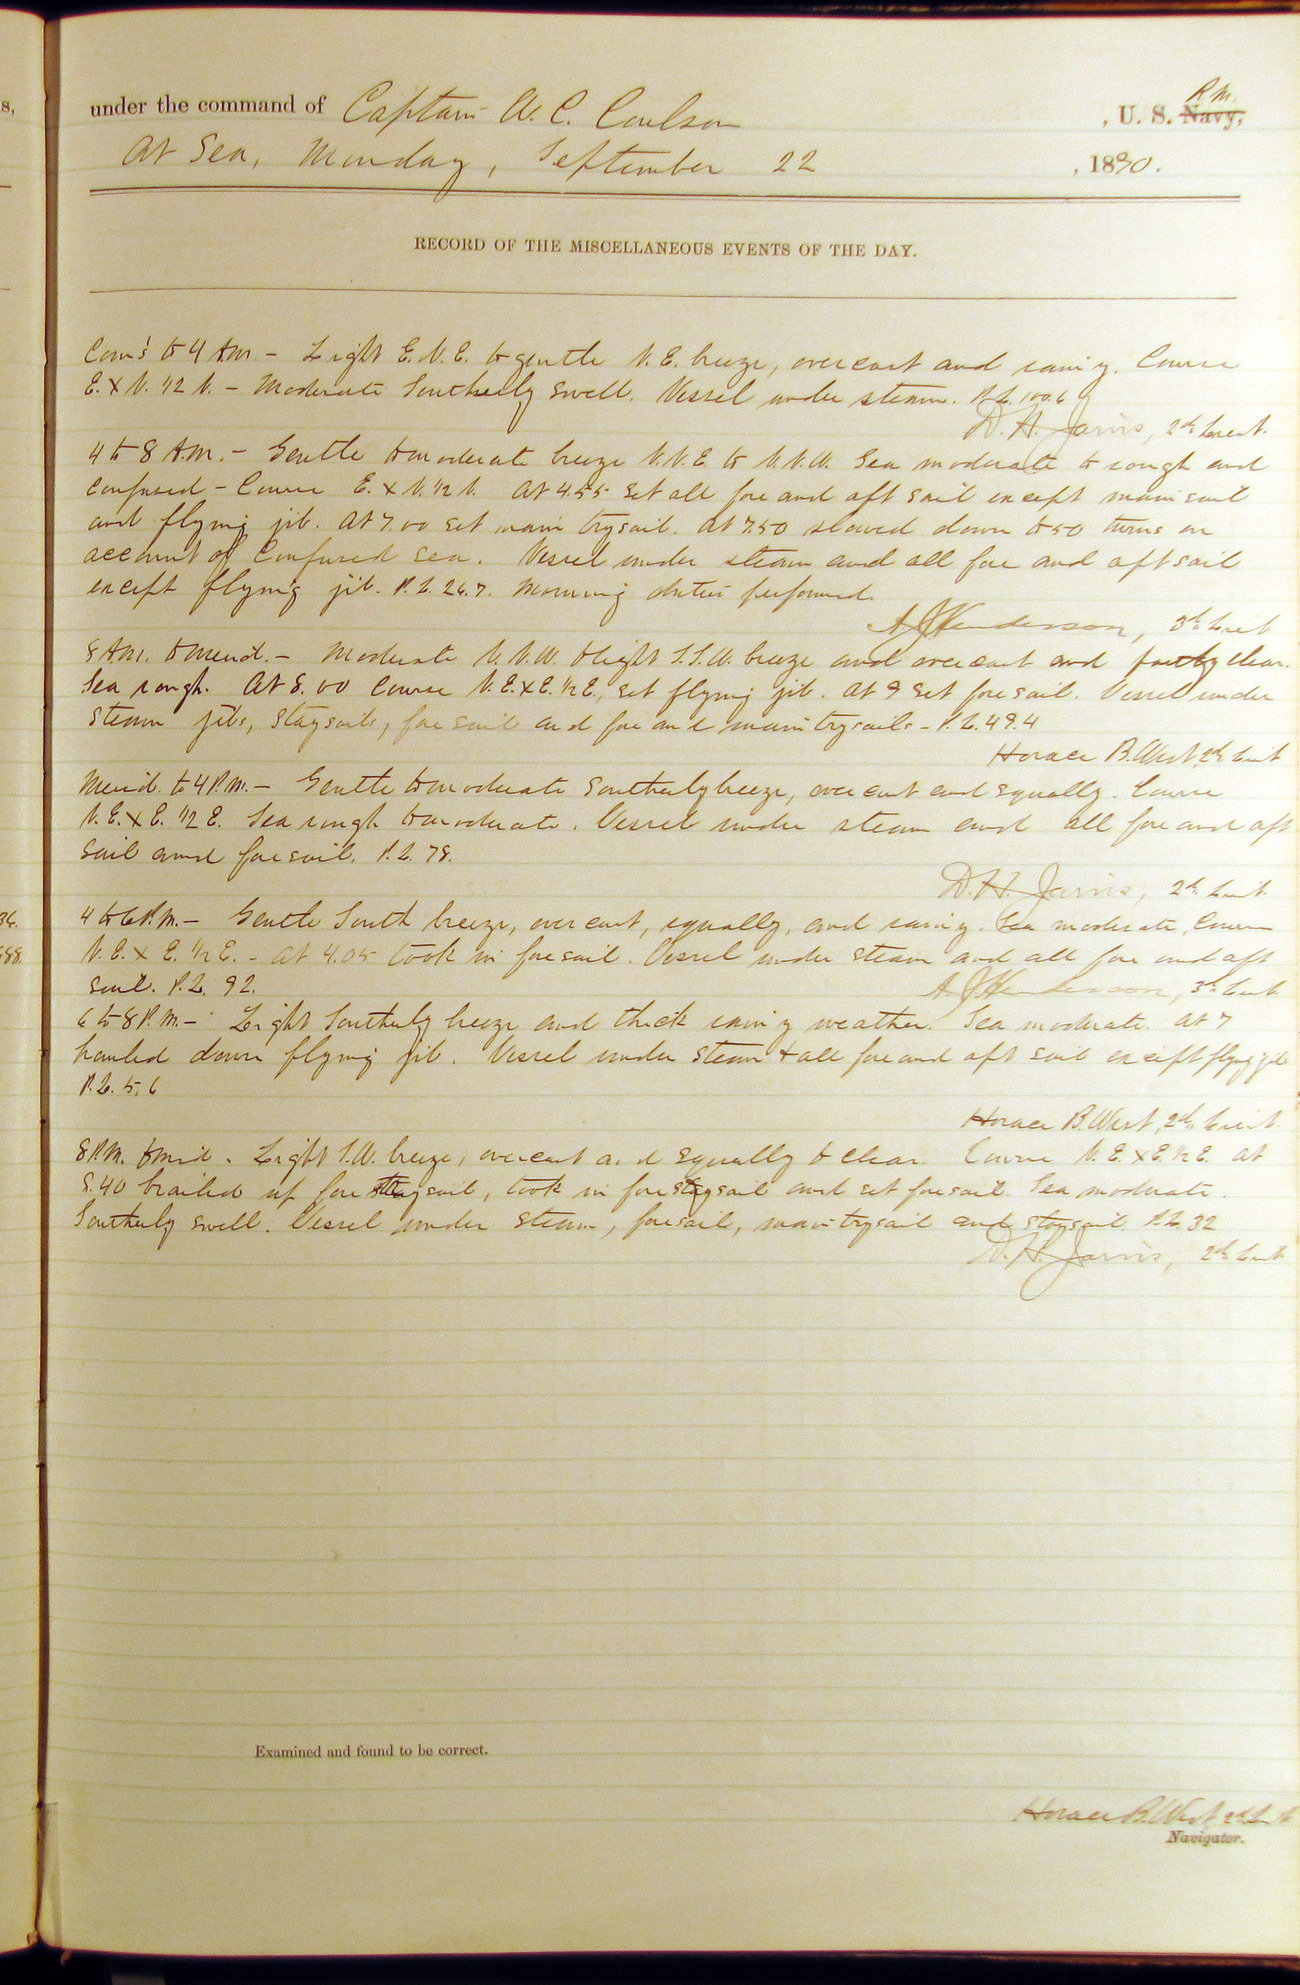 s,
under the command of Captain W. C. Coulson , U. S. Navy, R. M.
At Sea, Monday, September 22 , 1890.
RECORD OF THE MISCELLANEOUS EVENTS OF THE DAY.
Com's to 4 A.M. – Light E.N.E. to gentle N.E. breeze, overcast and rainy. Course
E. x N. 1/2 N. – Moderate Southerly swell. Vessel under steam. P.L. 100.6
D. H. Jarvis, 2d Lieut.
4 to 8 A.M. – Gentle to moderate breeze N.N.E. to N.N.W. Sea moderate to rough and
confused – Course E. x N. 1/2 N. At 4.55 set all fore and aft sail except main sail
and flying jib. At 7.00 set main trysail. At 7.50 slowed down to 50 turns on
account of confused sea. Vessel under steam and all fore and aft sail
except flying jib. P.L. 26.7. Morning duties performed.
A J Henderson, 3d Lieut
8 A.M. to Merid. – Moderate N.N.W. to light S.S.W. breeze and overcast and partly clear.
Sea rough. At 8.00 Course N.E. x E. 1/2 E., set flying jib. At 9 set foresail. Vessel under
steam jibs, staysails, foresail and fore and main trysails – P.L. 49.4
Horace B. West 2d Lieut
Merid. to 4 P.M. – Gentle to moderate Southerly breeze, overcast and squally. Course
N.E. x E. 1/2 E. Sea rough to moderate. Vessel under steam and all fore and aft
sail and foresail. P.L. 78.
D. H. Jarvis, 2d Lieut
36.
588.
4 to 6 P.M. – Gentle South breeze, overcast, squally, and rainy. Sea moderate, Course
N.E. x E. 1/2 E. – At 4.05 took in foresail. Vessel under steam and all fore and aft
sail. P.L. 92.
A. J Henderson, 3d Lieut
6 to 8 P.M. – Light Southerly breeze and thick rainy weather. Sea moderate. At 7
hauled down flying jib. Vessel under steam & all fore and aft sail except flying jib
P.L. 5.6
Horace B. West, 2d Lieut.
8 P.M. to mid. Light S.W. breeze, overcast and squally to clear. Course N.E. x E. 1/2 E. At
8.40 brailed up fore trysail, took in fore staysail and set foresail. Sea moderate.
Southerly swell. Vessel under steam, foresail, main trysail and staysail. P.L. 32
D. H. Jarvis, 2d Lieut
Examined and found to be correct.
Horace B. West 2d Lieut
Navigator.